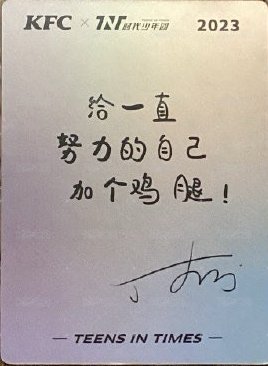 KFC × TNT 时代少年团 2023
给一直
努力的自己
加个鸡腿！
— TEENS IN TIMES —